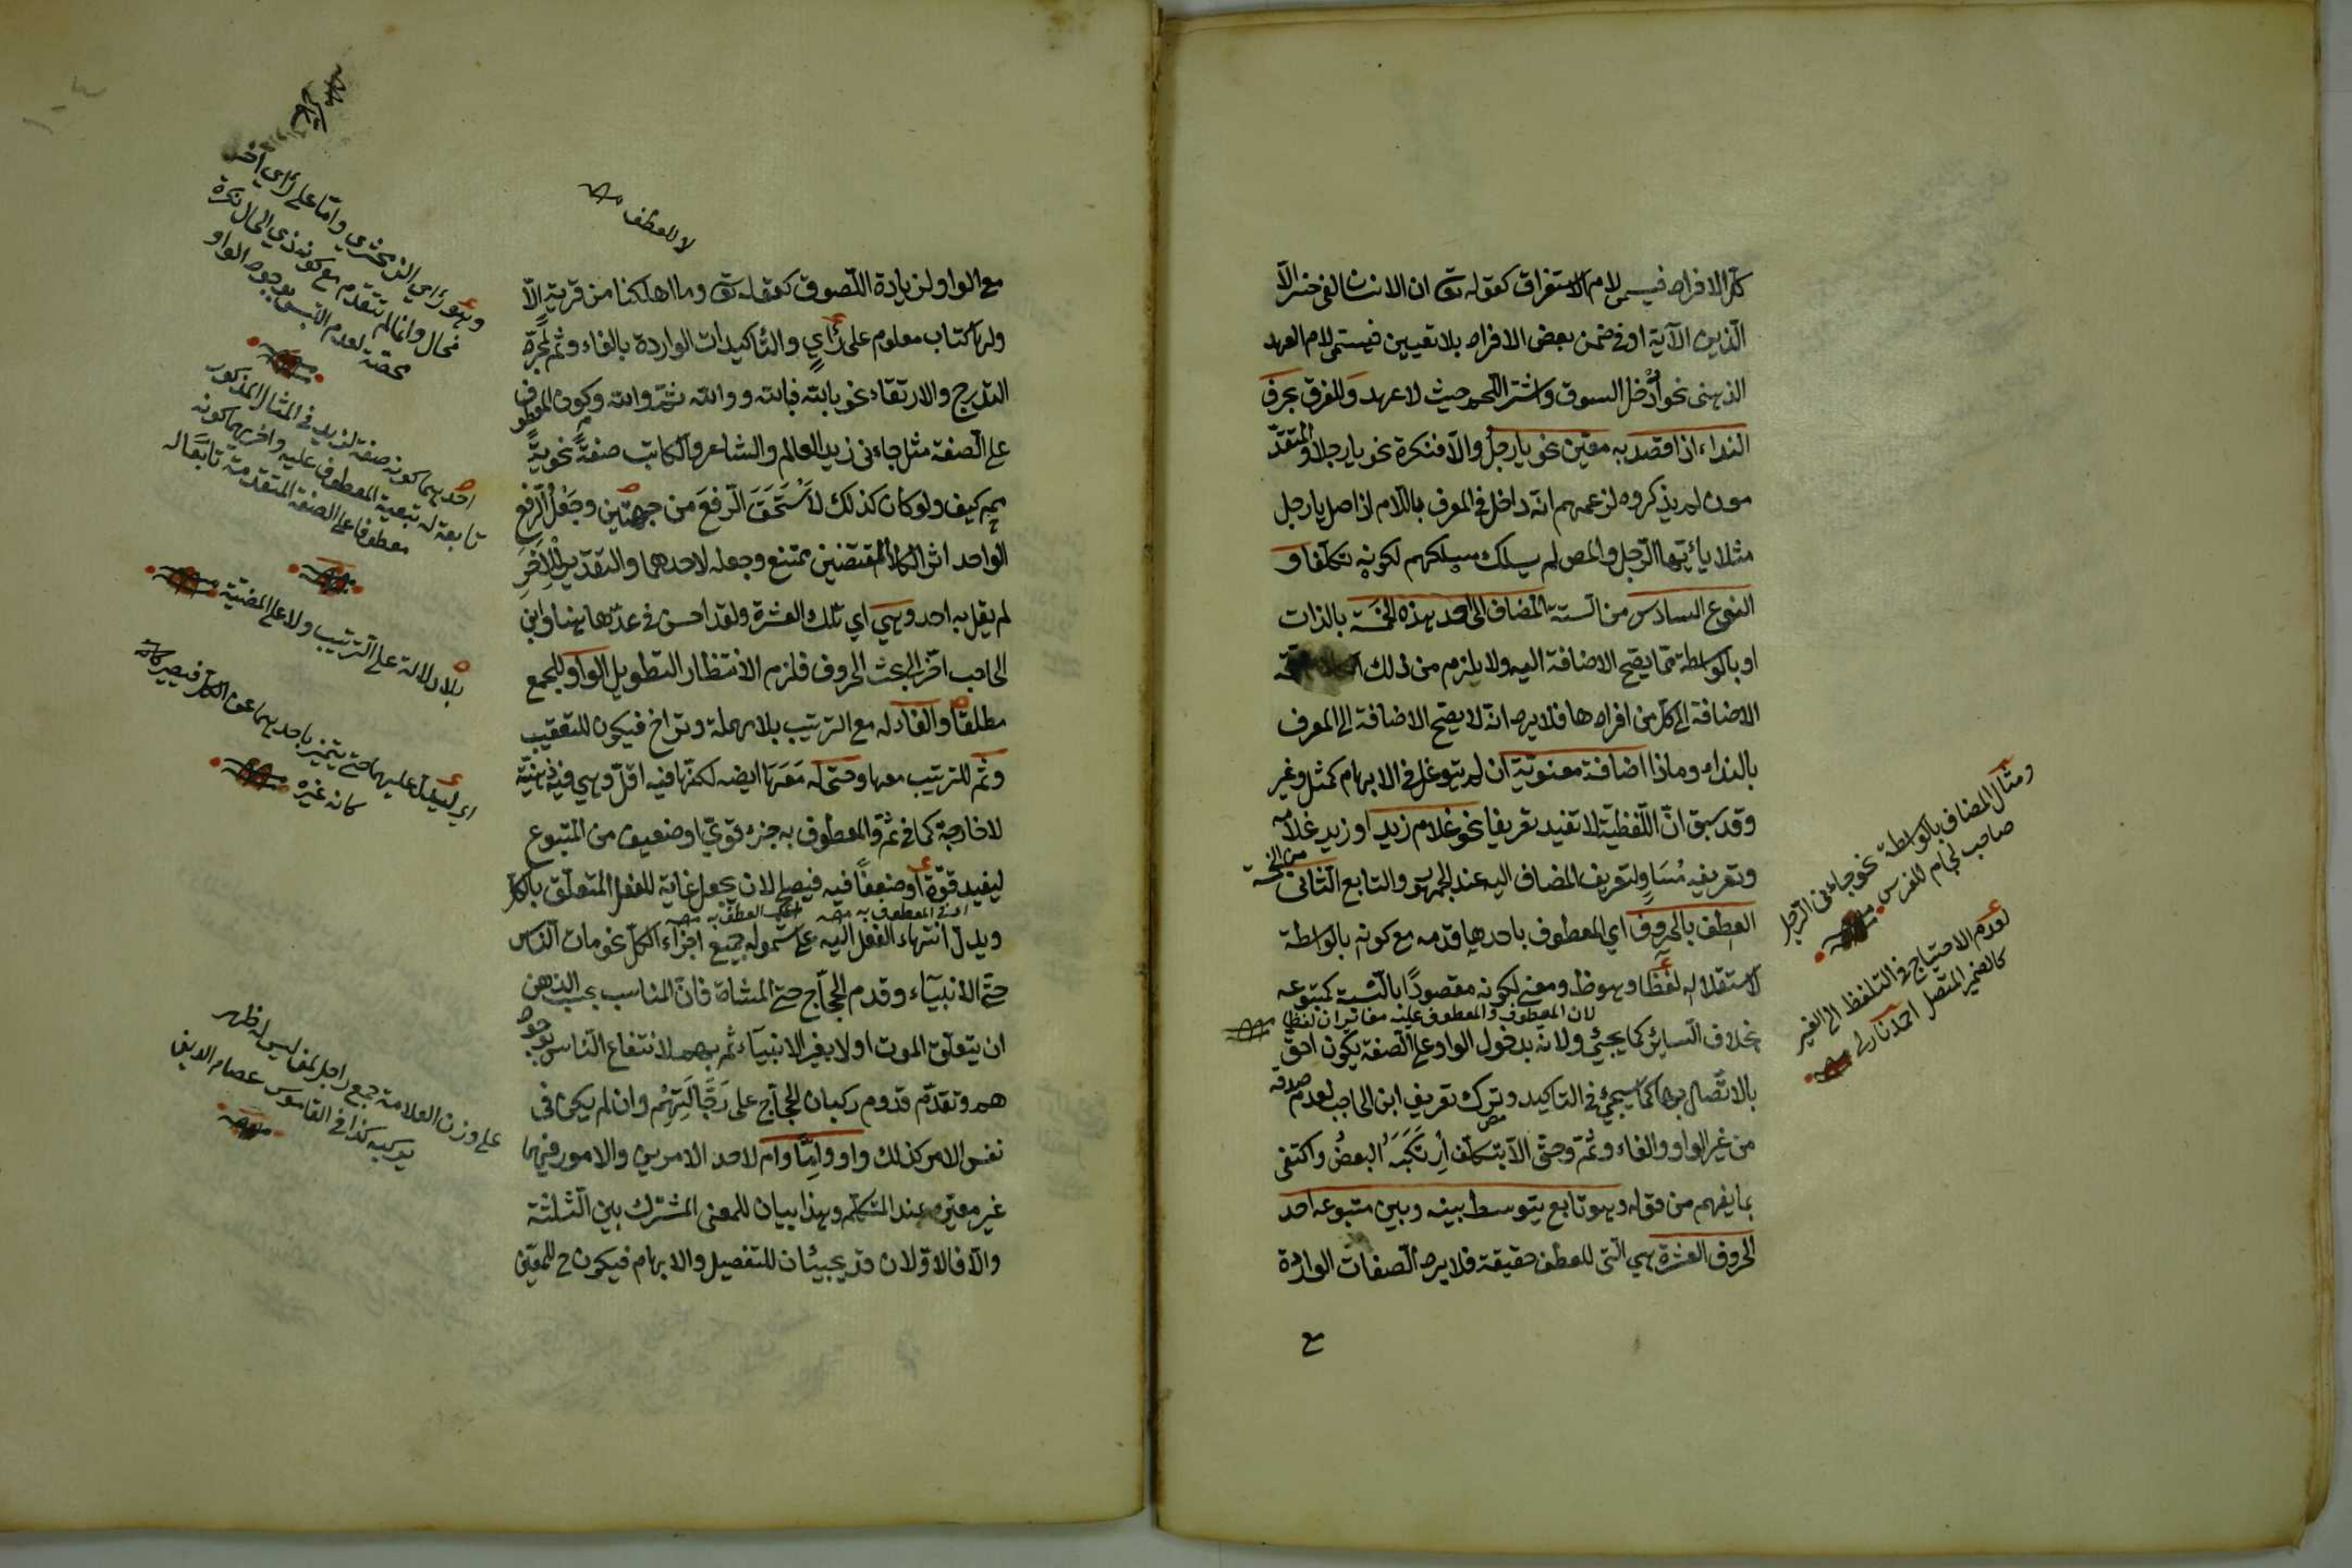 كل الافراد فيسمى لام الاستغراق كقوله تع ان الانسان لفى خسر الّا
الّذين الآية او فى ضمن بعض الافراد بلا تعيين فيسمّى لام العهد
الذهنى نحو اُدْخل السوق واشتر اللّحم حيث لا عهد وللفرق بحرف
النداء اذا قصد به معيّن نحو يا رجلُ والّا فنكرة نحو يا رجلا والمتقدّ
مون لم يذكروه لزعمهم انّه داخل فى المعرف باللّام اذ اصل يا رجل
مثلا يا ايّها الرّجل والمص لم يسلك مسلكهم لكونه تكلّفا و
النوع السادس من الستة المضاف الى احد هذه الخمسة بالذات
او بالواسطة ممّا يصّح الاضافة اليه ولا يلزم من ذلك
الاضافة الى كلّ من افرادها فلا يرد انّه لا يصّح الاضافة الى المعرف
بالنداء وماذا اضافة معنويّة ان لم يتوغل فى الابهام كمثل وغير
وقد سبق انّ اللّفظيّة لا تفيد تعريفا نحو غلام زيد او زيد غلامه
وتعريفه مُسَاوٍ لتعريف المضاف اليه عند الجمهور والتابع الثانى من الخمسة
العطف بالحروف اي المعطوف باحدها قدمه مع كونه بالواسطة
لاستقلاله لفظا وهو ظ ومعنى لكونه مقصودًا بالنّسبة كمتبوعه
لان المعطوف والمعطوف عليه مغايران لفظا
بخلاف السائر كما يجيئ ولانّه بدخول الواو على الصّفة يكون احقّ
بالاتّصال بها كما سيجيئ فى التاكيد وترك تعريف ابن الحاجب لعدم صدقه
من غير الواو والفاء وثمّ وحتّى الّا بتكلّف اِرْتَكَبَهُ البعضُ واكتفى
بما يفهم من قوله وهو تابع يتوسط بينه وبين متبوعه احد
الحروف العشرة هي الّتى للعطف حقيقة فلا يرد الصّفات الواردة
مع
ومثال المضاف بالواسطة نحو جاءنى الرّجل
صاحب لجام للفرس
لعدم الاحتياج فى التلفظ الى الغير
كالضمير المتصل
لا للعطف
مع الواو لزيادة اللّصوق كقوله تع وما اهلكنا من قرية الّا
ولها كتاب معلوم على رأيٍ والتّاكيدات الواردة بالفاء وثم لمجرّد
التدرج والارتقاء نحو بالله فبالله ووالله ثمّ والله وكون المعطوف
على الصّفة مثل جاءنى زيد العالم والشاعر والكاتب صفةً نحويةً
كيف ولو كان كذلك لاَسْتَحَقَ الرّفعَ من جهتين وجَعْلُ الرّفع
الواحد اثر المقتضيين ممتنع وجعله لاحدهما والتقدير للآخَرِ
لم يقل به احد وهي اي تلك العشرة ولقد احسن فى عدّها هنا وابن
الحاجب اخّر الى بحث الحروف فلزم الانتظار التطويل الواو للجمع
مطلقًا والفاء له مع الترتيب بلا مهملة وتراخ فيكون للتعقيب
وثمّ للترتيب معها وحتّى له مَعَهَا ايضه لكنّها فيه اقلّ وهي فيه ذهنيّة
لا خارجيّة كما فى ثمّ والمعطوف به جزء قويّ او ضعيف من المتبوع
ليفيد قوّة او ضعفًا فيه فيصلح لان يجعل غاية للفعل المتعلّق بالكلّ
ويدلّ انتهاء الفعل اليه على شموله جميع اجزاء الكلّ نحو مات النّاس
حتّى الانبياء وقدم الحجّاج حتّى المشاة فانّ المناسب بحسب الذهن
ان يتعلّق الموت اولا بغير الانبياء ثم بهم لانتفاع النّاس بوجود
هم وتقدّم قدوم ركبان الحجّاج على رجّالتهم وان لم يكن فى
نفس الامر كذلك واو وامّا وام لاحد الامرين والامور فيهما
غير معيّن عند المتكلّم وهذا بيان للمعنى المشترك بين الثلثة
والّا فالاوّلان قد يجيئان للتفصيل والابهام فيكون ح للمعيّن
وهو رأي الزمخشري وامّا على رأي آخر
فحال وانما لم يتقدم مع كون ذي الحال نكرة
محضة لعدم اللبس بوجود الواو
احدهما كونه صفة لزيد فى المثال المذكور
تابعة له تبعية المعطوف عليه واخريهما كونه
معطوفا على الصفة المتقدمة تابعا له
بلا دلالة على الترتيب ولا على المعية
اي ليدلّ عليهما حتّى يتميز باحديهما عن الكلّ فيصير كانّه
كانه غيره
على وزن العلّامة جمع راجل لمن ليس له ظهر
يركبه كذا فى القاموس عصام الدين